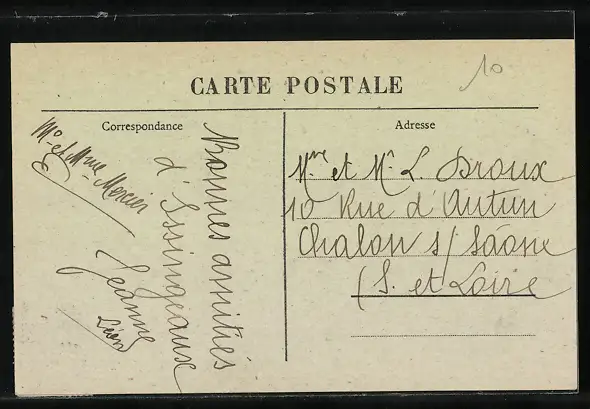 CARTE POSTALE
10
Correspondance
Adresse
Bonnes amitiés
d'Issingeaux
Jeanne
Léon
Mr et Mme Mercier
Mme et Mr L. Droux
10 Rue d'Autun
Chalon s/ Sâone
(S. et Loire